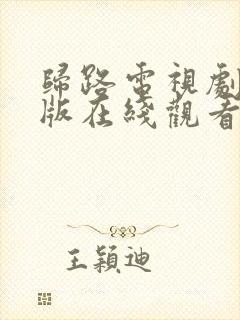 歸路電視劇
版在綫觀看
王穎迪